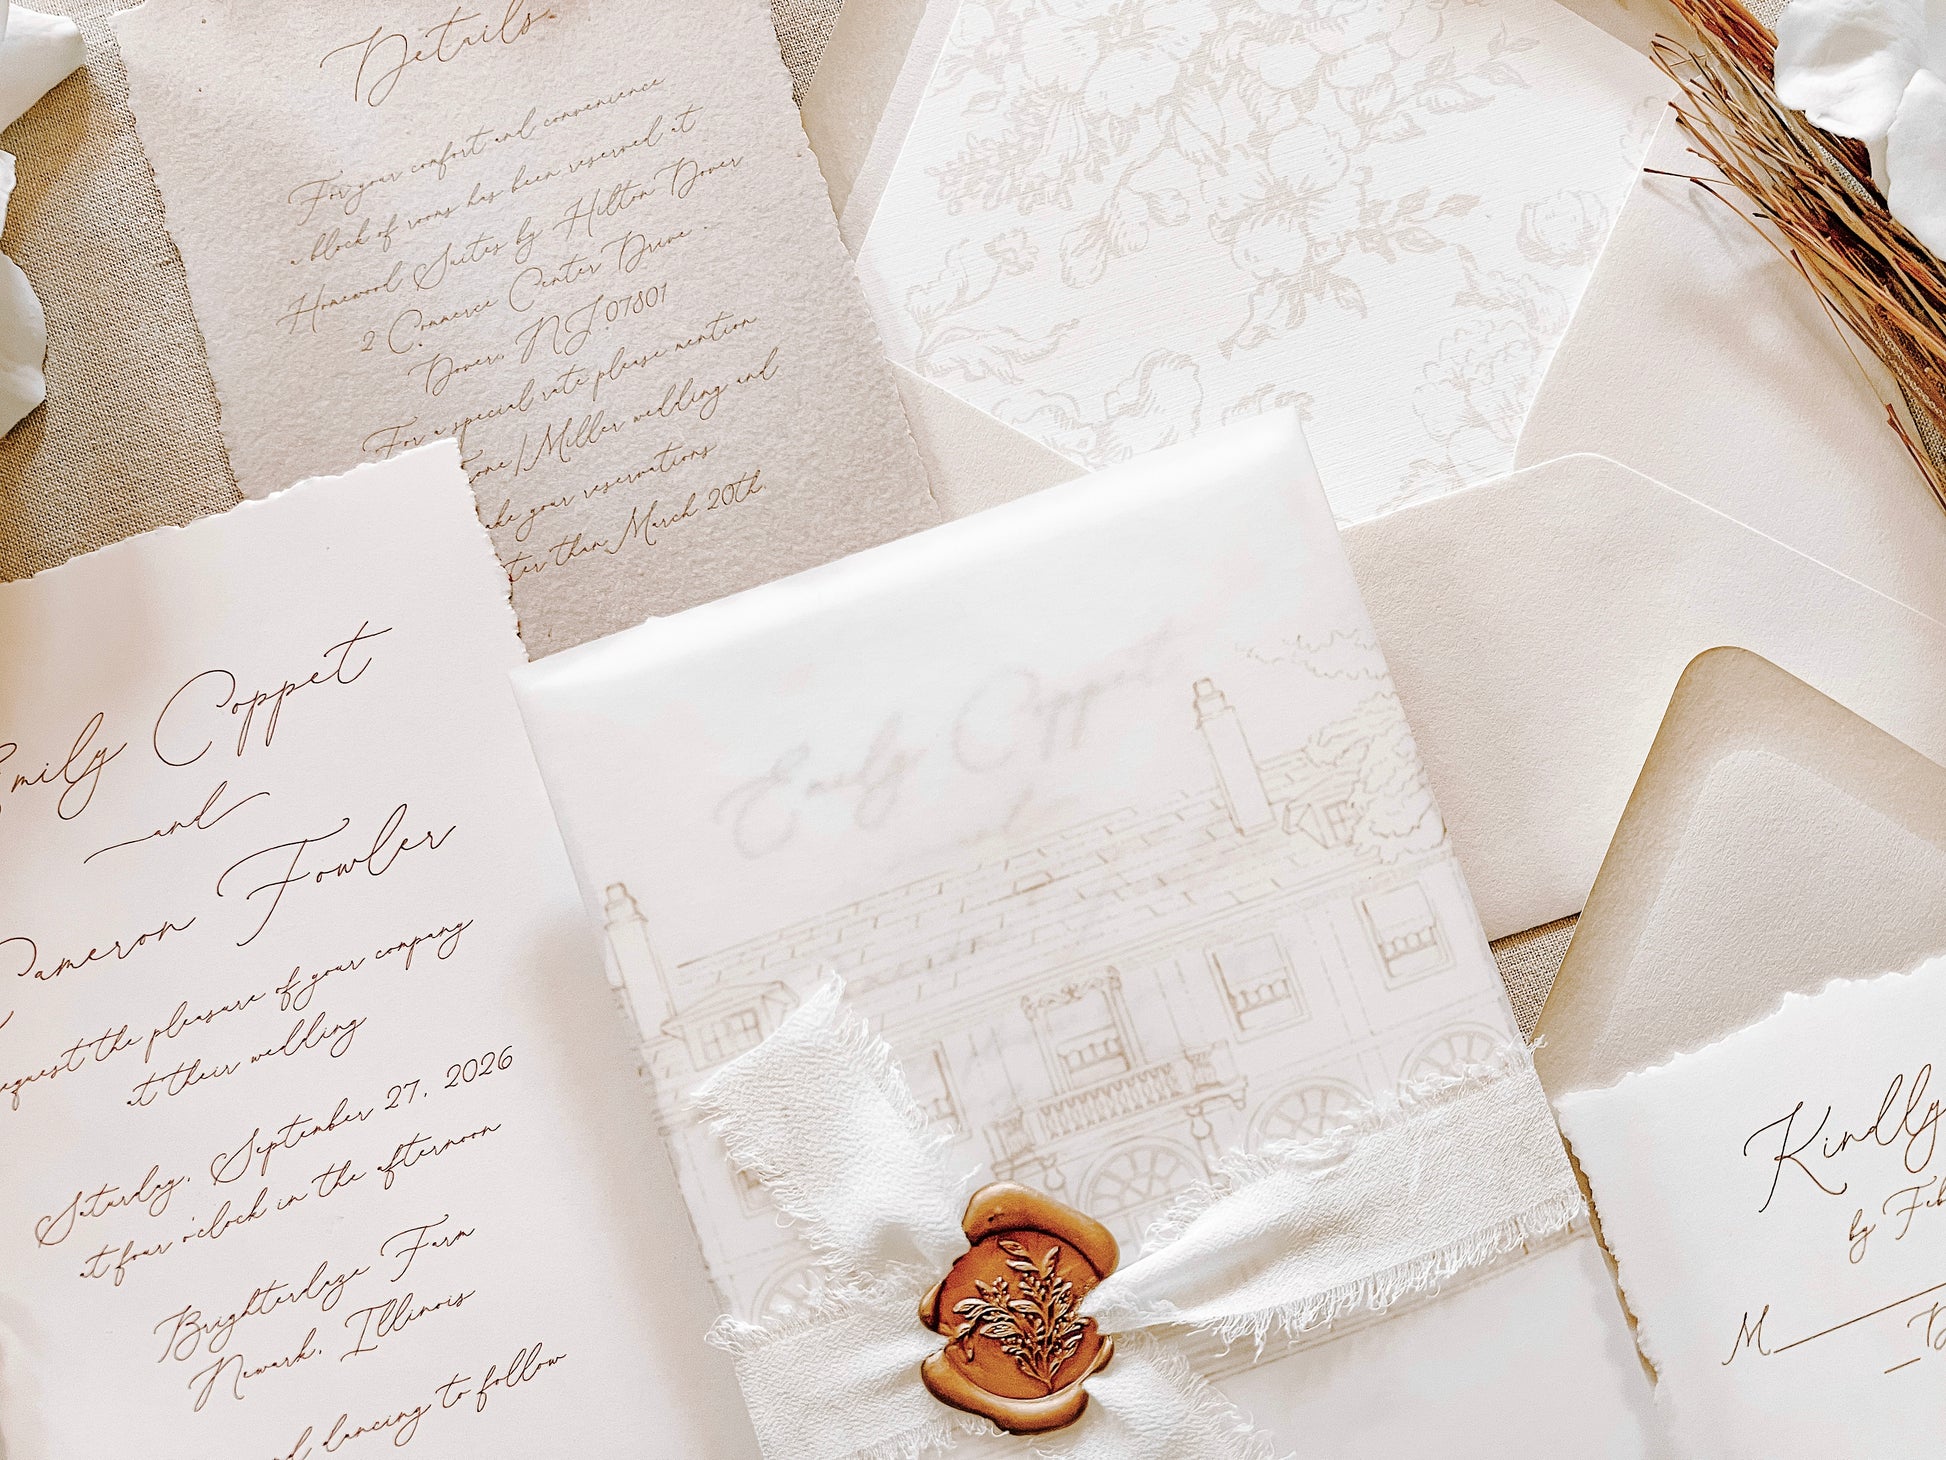 Details
For your comfort and convenience
a block of rooms has been reserved at
Homewood Suites by Hilton Dover
2 Commerce Center Drive
Dover, NJ 07801
For a special rate please mention
/Miller wedding and
your reservations
than March 20th.
Emily Coppet
and
Cameron Fowler
request the pleasure of your company
at their wedding
Saturday, September 27, 2026
at four o'clock in the afternoon
Brighterdaze Farm
Newark, Illinois
dancing to follow
Emily Coppet
and
Kindly
by Feb
M